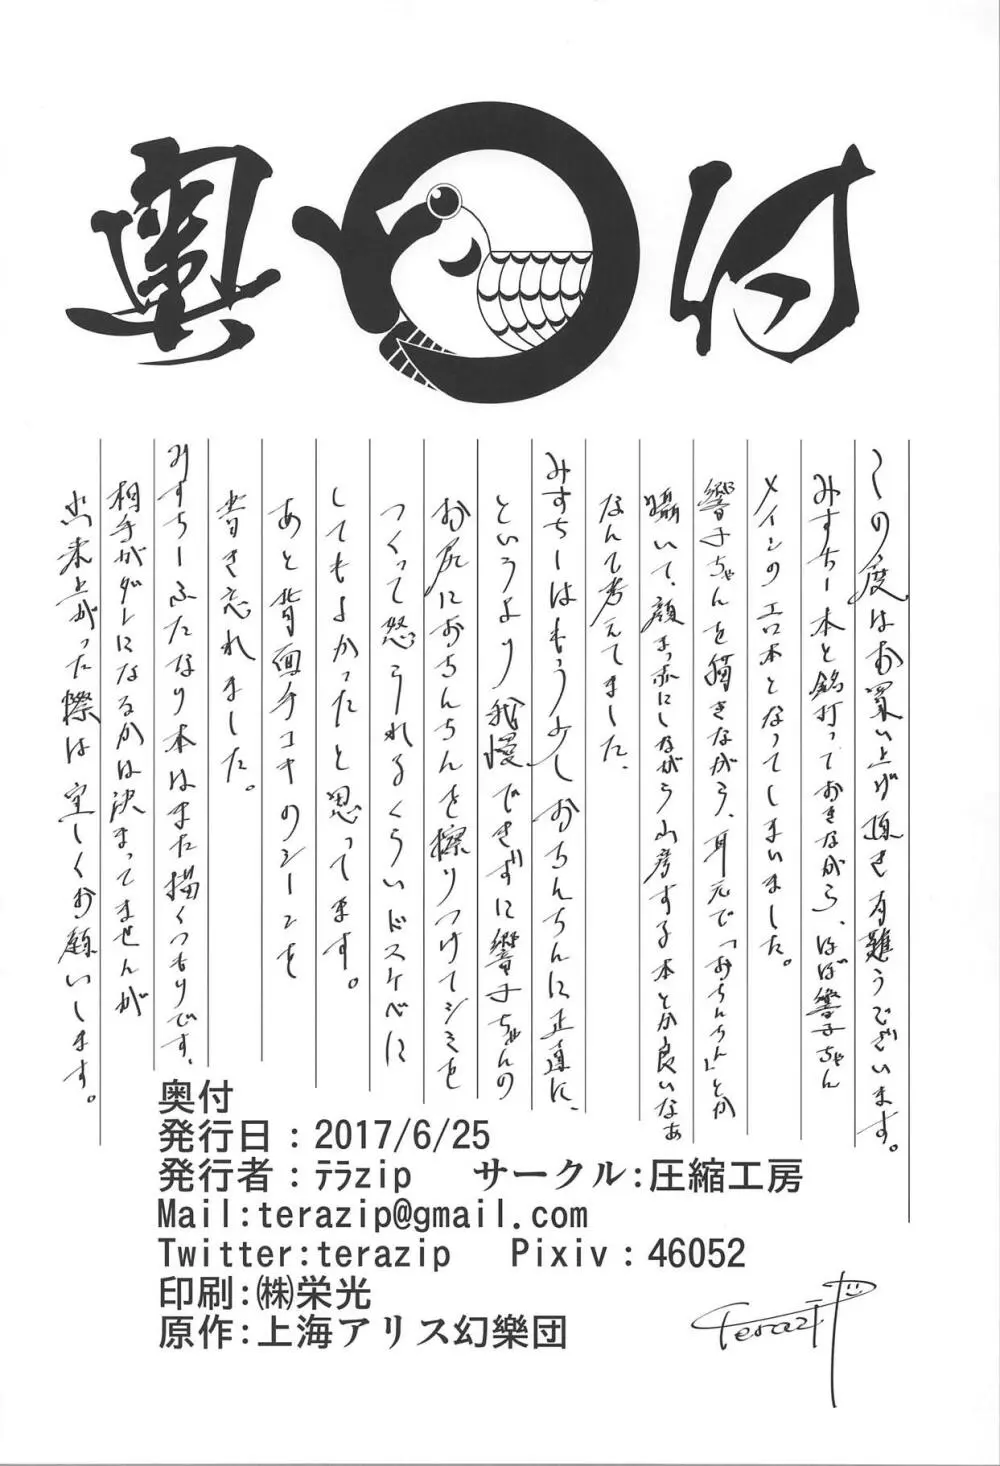 奥付
この度はお買い上げ頂き有難うございます。
みすちー本と銘打っておきながら、ほぼ響子ちゃん
メインのエロ本となってしまいました。
響子ちゃんを描きながら、耳元で「おちんちん」とか
囁いて、顔まっ赤にしながら山彦する本とか良いなぁ
なんて考えてました。
みすちーはもう少しおちんちんに正直に、
というより我慢できずに響子ちゃんの
お尻におちんちんを擦りつけてシミを
つくって怒られるくらいドスケベに
してもよかったと思ってます。
あと背面手コキのシーンを
書き忘れました。
みすちーふたなり本はまた描くつもりです。
相手がダレになるかは決まってませんが
出来上がった際は宜しくお願いします。
奥付
発行日：2017/6/25
発行者：ﾃﾗzip サークル:圧縮工房
Mail:terazip@gmail.com
Twitter:terazip Pixiv：46052
印刷:㈱栄光
原作:上海アリス幻樂団
Terazip